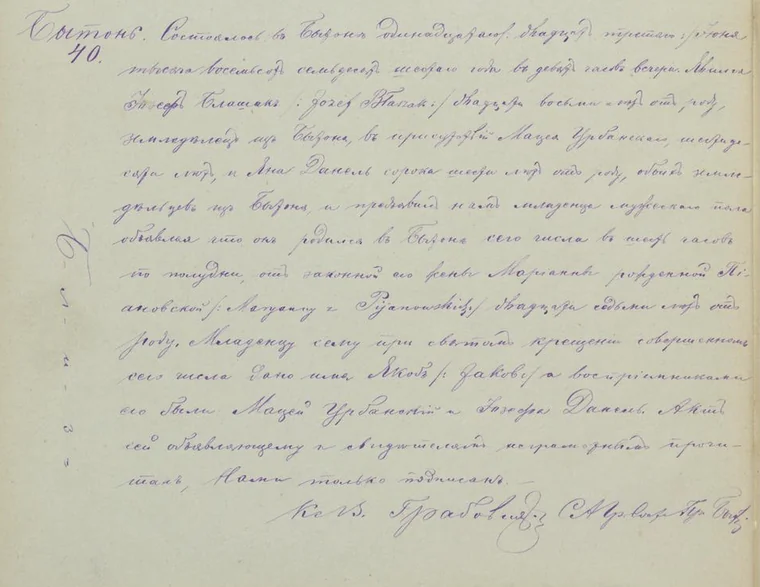 Бытонь.
40.
Состоялось въ Бытонѣ одинадцатаго /: двадцать третьяго :/ Іюня
тысяча восемьсотъ семьдесятъ шестаго года въ девять часовъ вечера. Явился
Іозефъ /: Józef :/ двадцати восьми лѣтъ отъ роду,
земледѣлецъ изъ Бытоня, въ присутствіи Мацея Урбанскаго, шестиде-
сяти лѣтъ, и Яна Данель сорока шести лѣтъ отъ роду, обоихъ земле-
дѣльцевъ изъ Бытоня, и предъявилъ намъ младенца мужескаго пола
объявляя что онъ родился въ Бытонѣ сего числа въ шесть часовъ
по полудни, отъ законной его жены Маріанны рожденной Пі-
яновской /: Maryanny z Pijanowskich :/ двадцати седьми лѣтъ отъ
роду. Младенцу сему при святомъ крещеніи совершенномъ
сего числа дано имя Якобъ /: Jakób :/ а воспріемниками
его были Мацей Урбанскій и Іозефа Данель. Актъ
сей объявляющему и свидѣтелямъ неграмотнымъ прочи-
танъ, Нами только подписанъ. —
Кс. В. Грабовскій